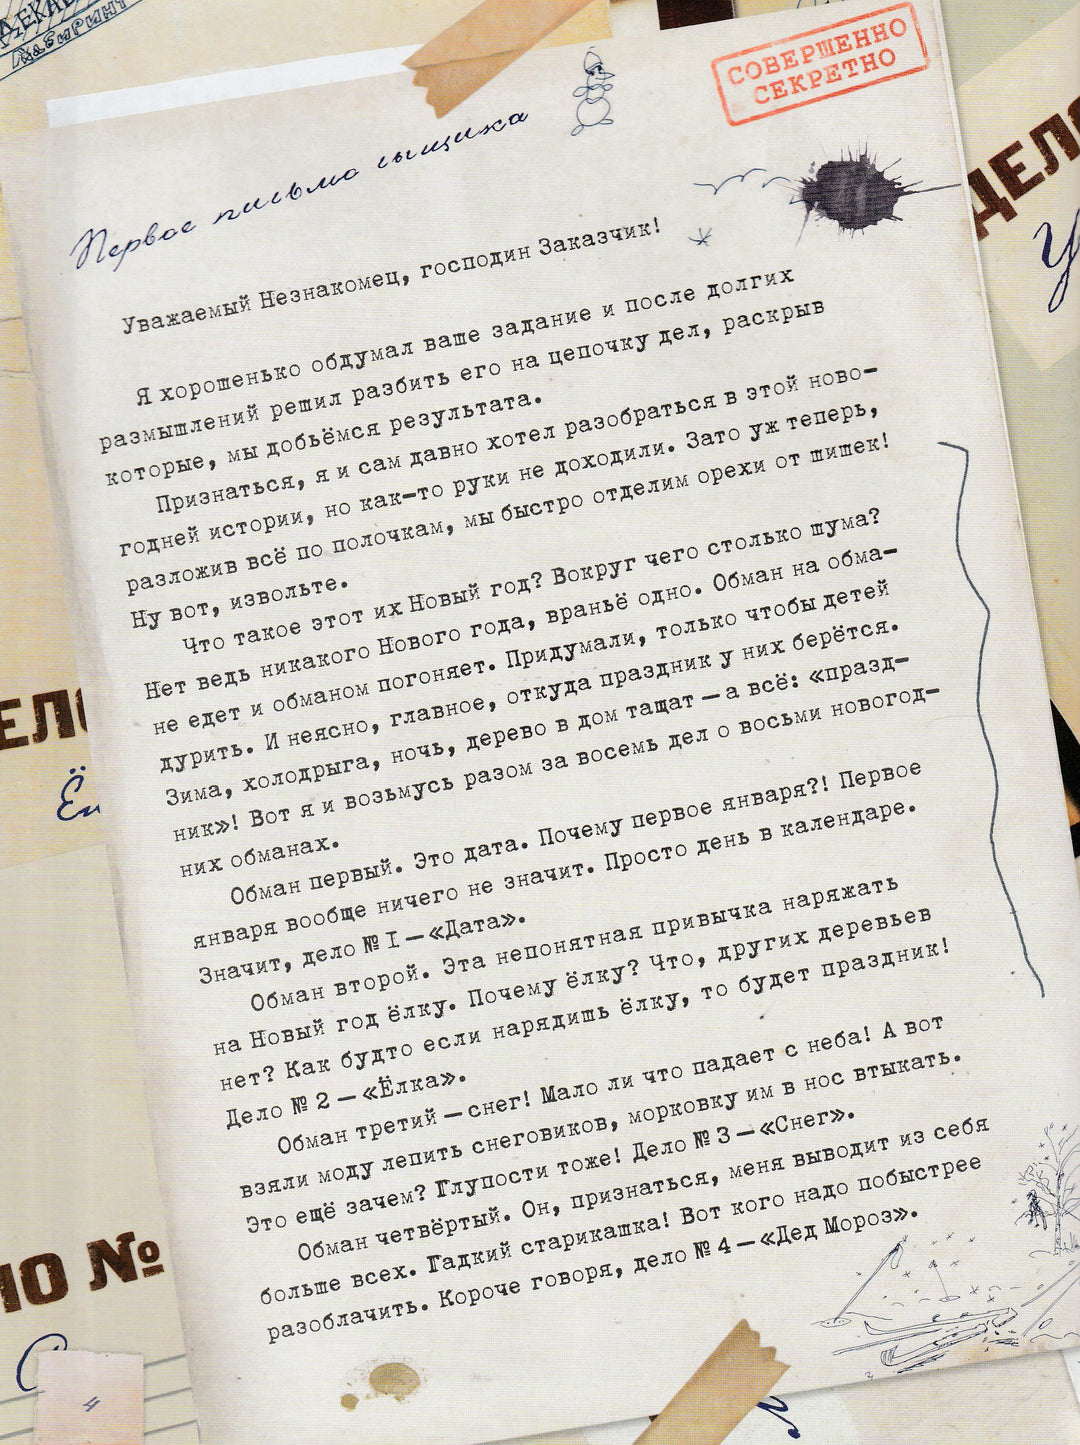 ДЕКАБ
Лабиринт
СОВЕРШЕННО
СЕКРЕТНО
Первое письмо сыщика
ДЕЛО
У
Уважаемый Незнакомец, господин Заказчик!
Я хорошенько обдумал ваше задание и после долгих
размышлений решил разбить его на цепочку дел, раскрыв
которые, мы добьёмся результата.
Признаться, я и сам давно хотел разобраться в этой ново-
годней истории, но как-то руки не доходили. Зато уж теперь,
разложив всё по полочкам, мы быстро отделим орехи от шишек!
Ну вот, извольте.
Что такое этот их Новый год? Вокруг чего столько шума?
Нет ведь никакого Нового года, враньё одно. Обман на обма-
не едет и обманом погоняет. Придумали, только чтобы детей
дурить. И неясно, главное, откуда праздник у них берётся.
Зима, холодрыга, ночь, дерево в дом тащат — а всё: «празд-
ник»! Вот я и возьмусь разом за восемь дел о восьми новогод-
них обманах.
Обман первый. Это дата. Почему первое января?! Первое
января вообще ничего не значит. Просто день в календаре.
Значит, дело № I — «Дата».
Обман второй. Эта непонятная привычка наряжать
на Новый год ёлку. Почему ёлку? Что, других деревьев
нет? Как будто если нарядишь ёлку, то будет праздник!
Дело № 2 — «Ёлка».
Обман третий — снег! Мало ли что падает с неба! А вот
взяли моду лепить снеговиков, морковку им в нос втыкать.
Это ещё зачем? Глупости тоже! Дело № 3 — «Снег».
Обман четвёртый. Он, признаться, меня выводит из себя
больше всех. Гадкий старикашка! Вот кого надо побыстрее
разоблачить. Короче говоря, дело № 4 — «Дед Мороз».
ЕЛО
Ёл
ЛО №
С
4